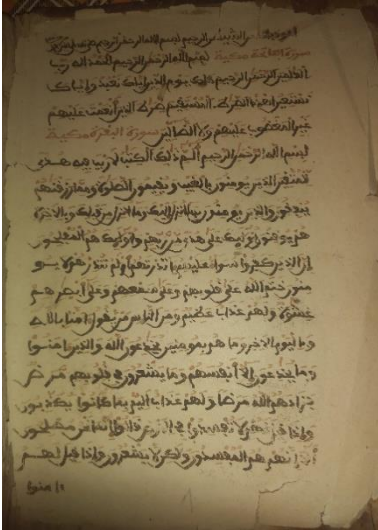 اعوذ بالله من الشيطان الرجيم بسم الله الرحمن الرحيم
سورة الفاتحة مكية بسم الله الرحمن الرحيم الحمد لله رب
العلمين الرحمن الرحيم ملك يوم الدين اياك نعبد واياك
نستعين اهدنا الصرط المستقيم صرط الذين انعمت عليهم
غير المغضوب عليهم ولا الضالين سورة البقرة مدنية
بسم الله الرحمن الرحيم الم ذلك الكتب لا ريب فيه هدى
للمتقين الذين يومنون بالغيب ويقيمون الصلوة ومما رزقنهم
ينفقون والذين يومنون بما انزل اليك وما انزل من قبلك وبالاخرة
هم يوقنون اوليك على هدى من ربهم واوليك هم المفلحون
ان الذين كفروا سواء عليهم ءانذرتهم ام لم تنذرهم لا يو
منون ختم الله على قلوبهم وعلى سمعهم وعلى ابصرهم
غشوة ولهم عذاب عظيم ومن الناس من يقول امنا بالله
وباليوم الاخر وما هم بمومنين يخدعون الله والذين امنوا
وما يخدعون الا انفسهم وما يشعرون في قلوبهم مرض
فزادهم الله مرضا ولهم عذاب اليم بما كانوا يكذبون
واذا قيل لهم لا تفسدوا في الارض قالوا انما نحن مصلحون
الا انهم هم المفسدون ولكن لا يشعرون واذا قيل لهم
ءامنوا